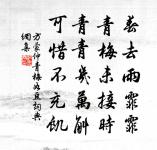 春去雨霏霏
青梅未接時
青青幾萬斛
可惜不充飢
方蒙仲青梅如豆詞典
網集